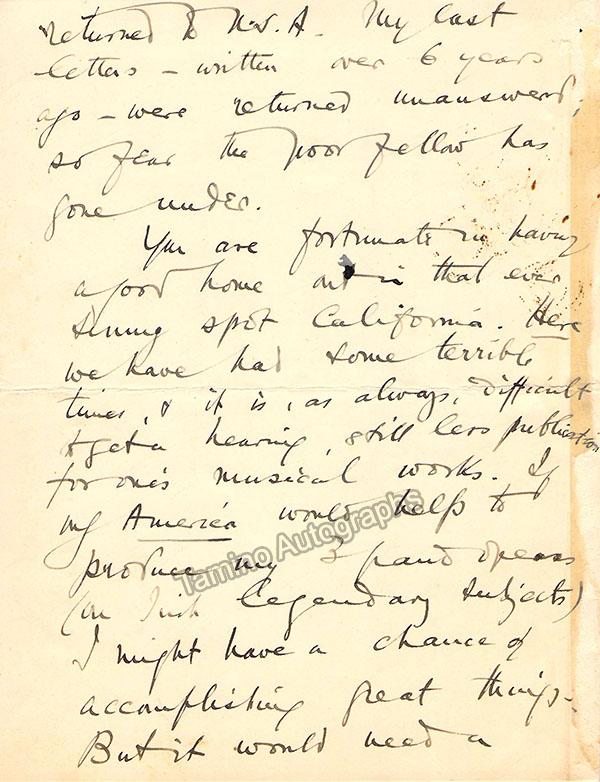 returned to U.S.A. My last
letters – written over 6 years
ago – were returned unanswered,
so fear the poor fellow has
gone under.
You are fortunate in having
a good home out in that ever
sunny spot California. Here
we have had some terrible
times, & it is, as always, difficult
to get a hearing, still less publication
for one's musical works. If
my America would help to
produce my 3 grand operas
(on Irish Legendary subjects)
I might have a chance of
accomplishing great things –
But it would need a
Tamino Autographs